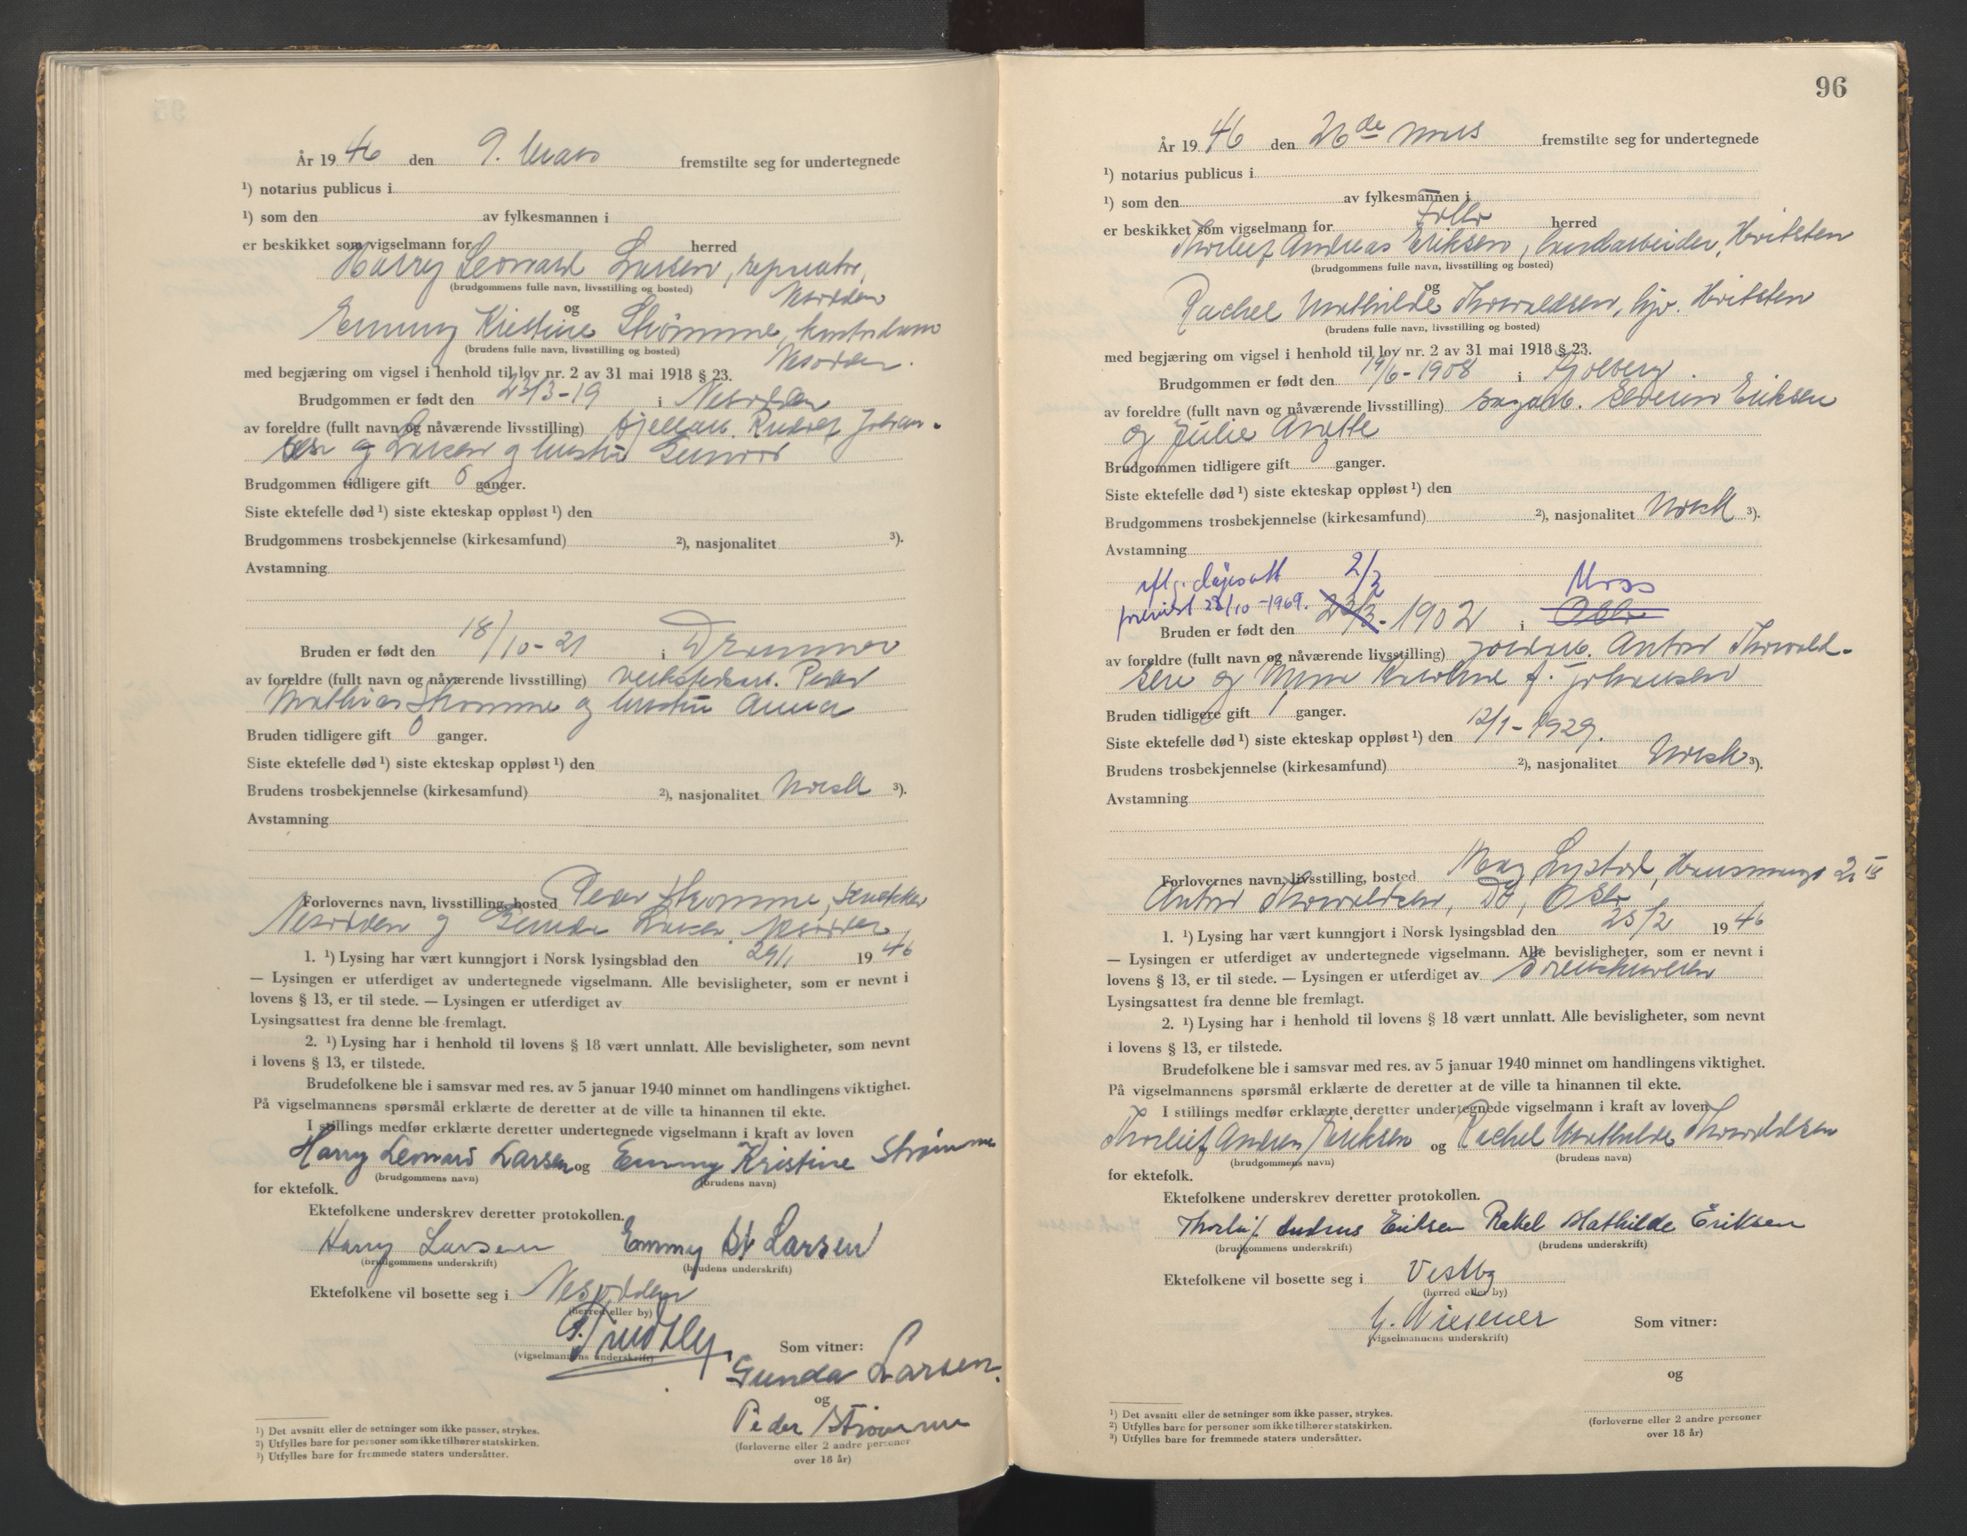 År 1946 den 9. mars fremstilte seg for undertegnede
¹) notarius publicus i
¹) som den av fylkesmannen i
er beskikket som vigselmann for herred
Harry Leonard Larsen, reparatør,
(brudgommens fulle navn, livsstilling og bosted)
Nesodden
og
Emmy Kristine Strømme, kontordame
(brudens fulle navn, livsstilling og bosted)
Nesodden.
med begjæring om vigsel i henhold til lov nr. 2 av 31 mai 1918 § 23.
Brudgommen er født den 23/3-19 i Nesodden
av foreldre (fullt navn og nåværende livsstilling) Rudolf Johan-
sen og Larsen og hustru
Brudgommen tidligere gift 0 ganger.
Siste ektefelle død ¹) siste ekteskap oppløst ¹) den
Brudgommens trosbekjennelse (kirkesamfund) ²), nasjonalitet ³).
Avstamning
Bruden er født den 18/10-21 i Drammen
av foreldre (fullt navn og nåværende livsstilling) verkstedarb. Peder
Mathias Strømme og hustru Anna
Bruden tidligere gift 0 ganger.
Siste ektefelle død ¹) siste ekteskap oppløst ¹) den
Brudens trosbekjennelse (kirkesamfund) ²), nasjonalitet norsk ³).
Avstamning
Forlovernes navn, livsstilling, bosted Peder Strømme, snekker
Nesodden og Gunda Larsen, Nesodden
1. ¹) Lysing har vært kunngjort i Norsk lysingsblad den 29/1 1946
— Lysingen er utferdiget av undertegnede vigselmann. Alle bevisligheter, som er nevnt i
lovens § 13, er til stede. — Lysingen er utferdiget av
Lysingsattest fra denne ble fremlagt.
2. ¹) Lysing har i henhold til lovens § 18 vært unnlatt. Alle bevisligheter, som nevnt
i lovens § 13, er tilstede.
Brudefolkene ble i samsvar med res. av 5 januar 1940 minnet om handlingens viktighet.
På vigselmannens spørsmål erklærte de deretter at de ville ta hinannen til ekte.
I stillings medfør erklærte deretter undertegnede vigselmann i kraft av loven
Harry Leonard Larsen og Emmy Kristine Strømme
(brudgommens navn) (brudens navn)
for ektefolk.
Ektefolkene underskrev deretter protokollen.
Harry Larsen Emmy St Larsen
(brudgommens underskrift) (brudens underskrift)
Ektefolkene vil bosette seg i Nesodden
(herred eller by)
(vigselmannens underskrift)
Som vitner:
Gunda Larsen.
og
Peder Strømme
(forloverne eller 2 andre personer
over 18 år)
¹) Det avsnitt eller de setninger som ikke passer, strykes.
²) Utfylles bare for personer som ikke tilhører statskirken.
³) Utfylles bare for fremmede staters undersåtter.
96
År 1946 den 26de mars fremstilte seg for undertegnede
¹) notarius publicus i
¹) som den av fylkesmannen i
er beskikket som vigselmann for Follo herred
Thorleif Andreas Eriksen, landarbeider, Hvitsten
(brudgommens fulle navn, livsstilling og bosted)
og
Rachel Mathilde Thorvaldsen, hjv. Hvitsten
(brudens fulle navn, livsstilling og bosted)
med begjæring om vigsel i henhold til lov nr. 2 av 31 mai 1918 § 23.
Brudgommen er født den 19/6-1908 i
av foreldre (fullt navn og nåværende livsstilling) sagarb. Severin Eriksen
og Julie Anette
Brudgommen tidligere gift ganger.
Siste ektefelle død ¹) siste ekteskap oppløst ¹) den
Brudgommens trosbekjennelse (kirkesamfund) ²), nasjonalitet Norsk ³).
Avstamning
eftg. dåpsatt 2/3 Moss
23/10-1969.
Bruden er født den 23/3-1902 i Oslo
av foreldre (fullt navn og nåværende livsstilling) jordarb. Anton Thorvald-
sen og Karoline f. Johansen
Bruden tidligere gift 1 ganger.
Siste ektefelle død ¹) siste ekteskap oppløst ¹) den 12/1-1929.
Brudens trosbekjennelse (kirkesamfund) ²), nasjonalitet Norsk ³).
Avstamning
Forlovernes navn, livsstilling, bosted Lystad, 2 III
Anton Thorvaldsen, Do, Oslo
1. ¹) Lysing har vært kunngjort i Norsk lysingsblad den 25/2 1946
— Lysingen er utferdiget av undertegnede vigselmann. Alle bevisligheter, som er nevnt i
lovens § 13, er til stede. — Lysingen er utferdiget av Sorenskriveren
Lysingsattest fra denne ble fremlagt.
2. ¹) Lysing har i henhold til lovens § 18 vært unnlatt. Alle bevisligheter, som nevnt
i lovens § 13, er tilstede.
Brudefolkene ble i samsvar med res. av 5 januar 1940 minnet om handlingens viktighet.
På vigselmannens spørsmål erklærte de deretter at de ville ta hinannen til ekte.
I stillings medfør erklærte deretter undertegnede vigselmann i kraft av loven
Thorleif Andreas Eriksen og Rachel Mathilde Thorvaldsen
(brudgommens navn) (brudens navn)
for ektefolk.
Ektefolkene underskrev deretter protokollen.
Thorleif Andreas Eriksen Rakel Mathilde Eriksen
(brudgommens underskrift) (brudens underskrift)
Ektefolkene vil bosette seg i Vestby
(herred eller by)
G. Wiesener
(vigselmannens underskrift)
Som vitner:
og
(forloverne eller 2 andre personer
over 18 år)
¹) Det avsnitt eller de setninger som ikke passer, strykes.
²) Utfylles bare for personer som ikke tilhører statskirken.
³) Utfylles bare for fremmede staters undersåtter.